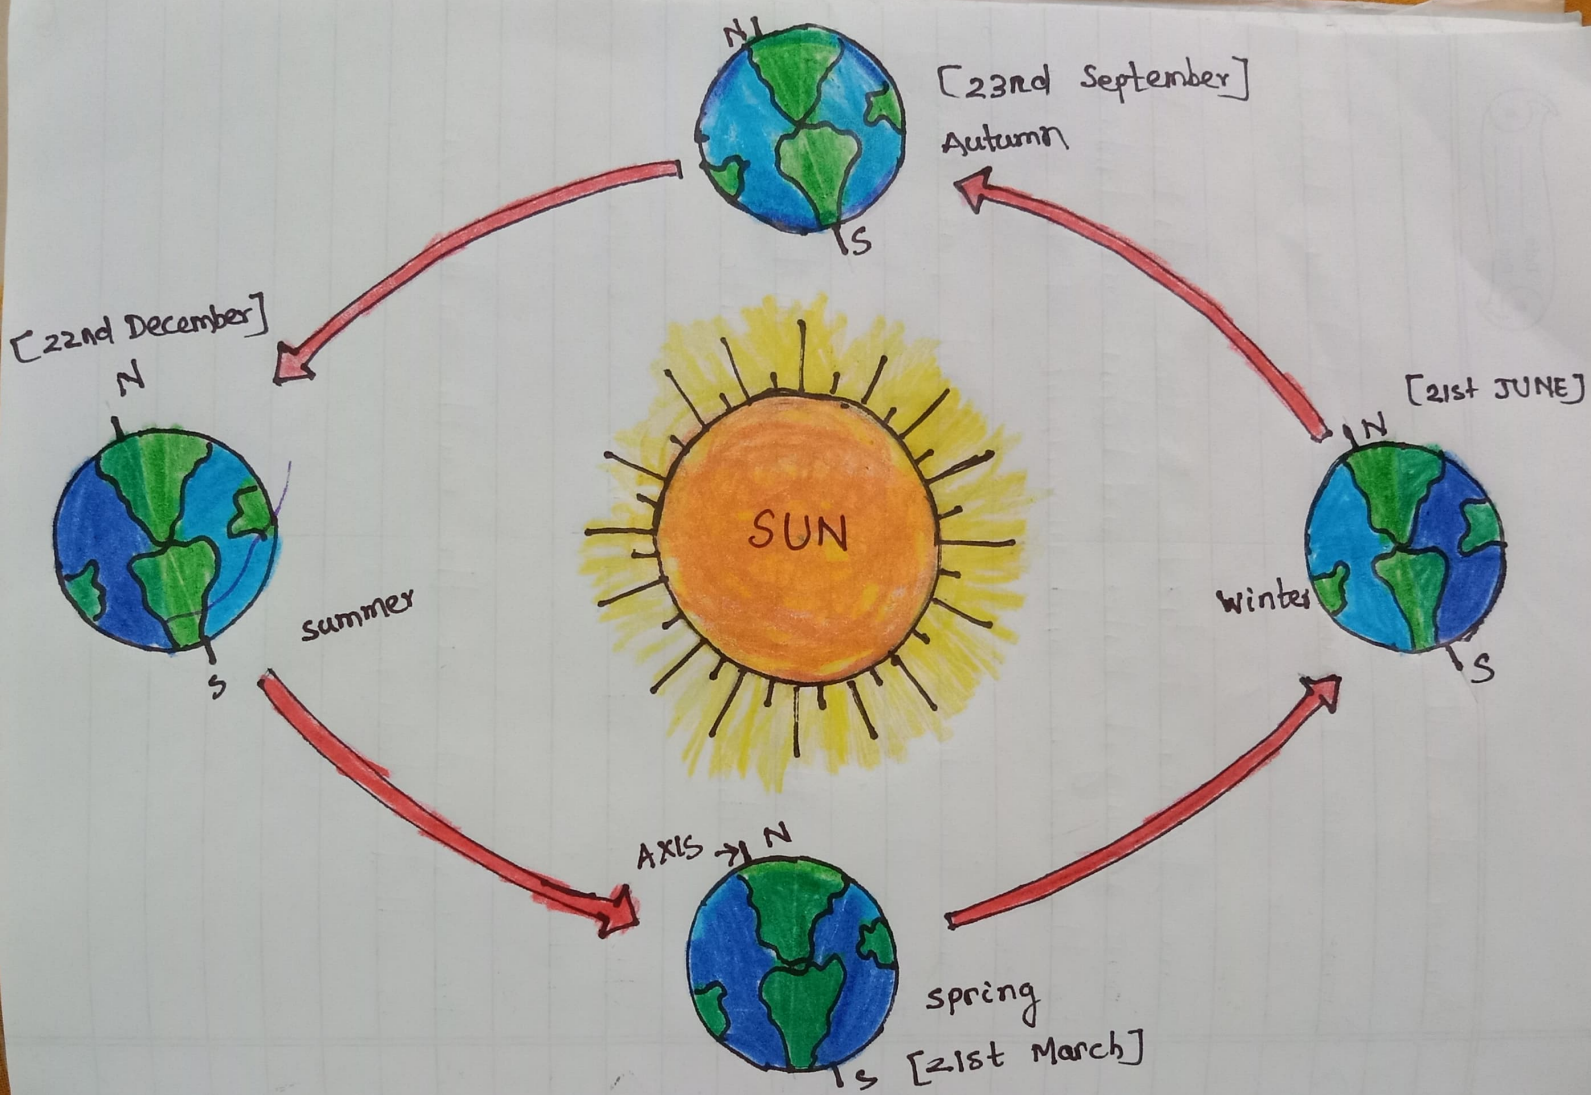 N
[23rd September]
Autumn
S
[22nd December]
N
summer
S
SUN
[21st JUNE]
N
winter
S
AXIS → N
spring
[21st March]
S